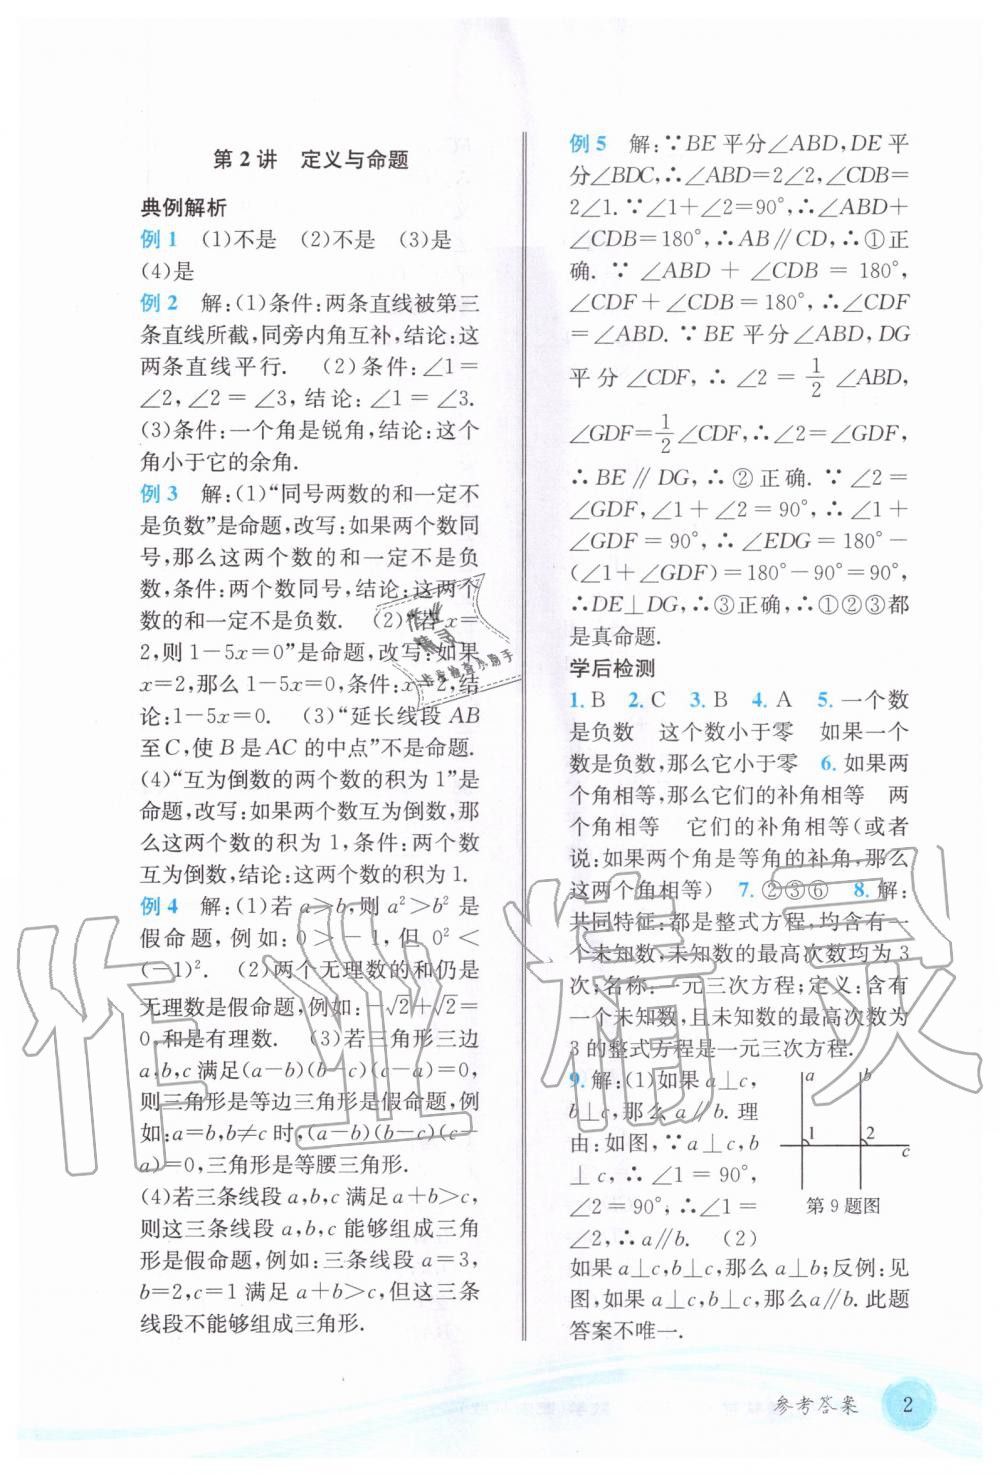 第2讲 定义与命题
典例解析
例1 (1)不是 (2)不是 (3)是
(4)是
例2 解:(1)条件:两条直线被第三
条直线所截,同旁内角互补,结论:这
两条直线平行. (2)条件:∠1=
∠2,∠2=∠3,结论:∠1=∠3.
(3)条件:一个角是锐角,结论:这个
角小于它的余角.
例3 解:(1)“同号两数的和一定不
是负数”是命题,改写:如果两个数同
号,那么这两个数的和一定不是负
数,条件:两个数同号,结论:这两个
数的和一定不是负数. (2)“若x=
2,则1-5x=0”是命题,改写:如果
x=2,那么1-5x=0,条件:x=2,结
论:1-5x=0. (3)“延长线段AB
至C,使B是AC的中点”不是命题.
(4)“互为倒数的两个数的积为1”是
命题,改写:如果两个数互为倒数,那
么这两个数的积为1,条件:两个数
互为倒数,结论:这两个数的积为1.
例4 解:(1)若a>b,则a²>b²是
假命题,例如:0>-1,但0²<
(-1)². (2)两个无理数的和仍是
无理数是假命题,例如:-√2+√2=
0,和是有理数. (3)若三角形三边
a,b,c满足(a-b)(b-c)(c-a)=0,
则三角形是等边三角形是假命题,例
如:a=b,b≠c时,(a-b)(b-c)(c-
a)=0,三角形是等腰三角形.
(4)若三条线段a,b,c满足a+b>c,
则这三条线段a,b,c能够组成三角
形是假命题,例如:三条线段a=3,
b=2,c=1满足a+b>c,但这三条
线段不能够组成三角形.
例5 解:∵BE平分∠ABD,DE平
分∠BDC,∴∠ABD=2∠2,∠CDB=
2∠1.∵∠1+∠2=90°,∴∠ABD+
∠CDB=180°,∴AB∥CD,∴①正
确.∵∠ABD+∠CDB=180°,
∠CDF+∠CDB=180°,∴∠CDF
=∠ABD.∵BE平分∠ABD,DG
平分∠CDF,∴∠2=1/2∠ABD,
∠GDF=1/2∠CDF,∴∠2=∠GDF,
∴BE∥DG,∴②正确.∵∠2=
∠GDF,∠1+∠2=90°,∴∠1+
∠GDF=90°,∴∠EDG=180°-
(∠1+∠GDF)=180°-90°=90°,
∴DE⊥DG,∴③正确,∴①②③都
是真命题.
学后检测
1. B 2. C 3. B 4. A 5. 一个数
是负数 这个数小于零 如果一个
数是负数,那么它小于零 6. 如果两
个角相等,那么它们的补角相等 两
个角相等 它们的补角相等(或者
说:如果两个角是等角的补角,那么
这两个角相等) 7. ②③⑥ 8. 解:
共同特征:都是整式方程,均含有一
个未知数,未知数的最高次数均为3
次;名称:一元三次方程;定义:含有
一个未知数,且未知数的最高次数为
3的整式方程是一元三次方程.
9. 解:(1)如果a⊥c,
b⊥c,那么a∥b.理
由:如图,∵a⊥c,b
⊥c,∴∠1=90°,
∠2=90°,∴∠1=
∠2,∴a∥b. (2)
a b
1 2
c
第9题图
如果a⊥c,b⊥c,那么a⊥b;反例:见
图,如果a⊥c,b⊥c,那么a∥b.此题
答案不唯一.
作业精灵
作业
精灵
作业检查小助手
参考答案 2